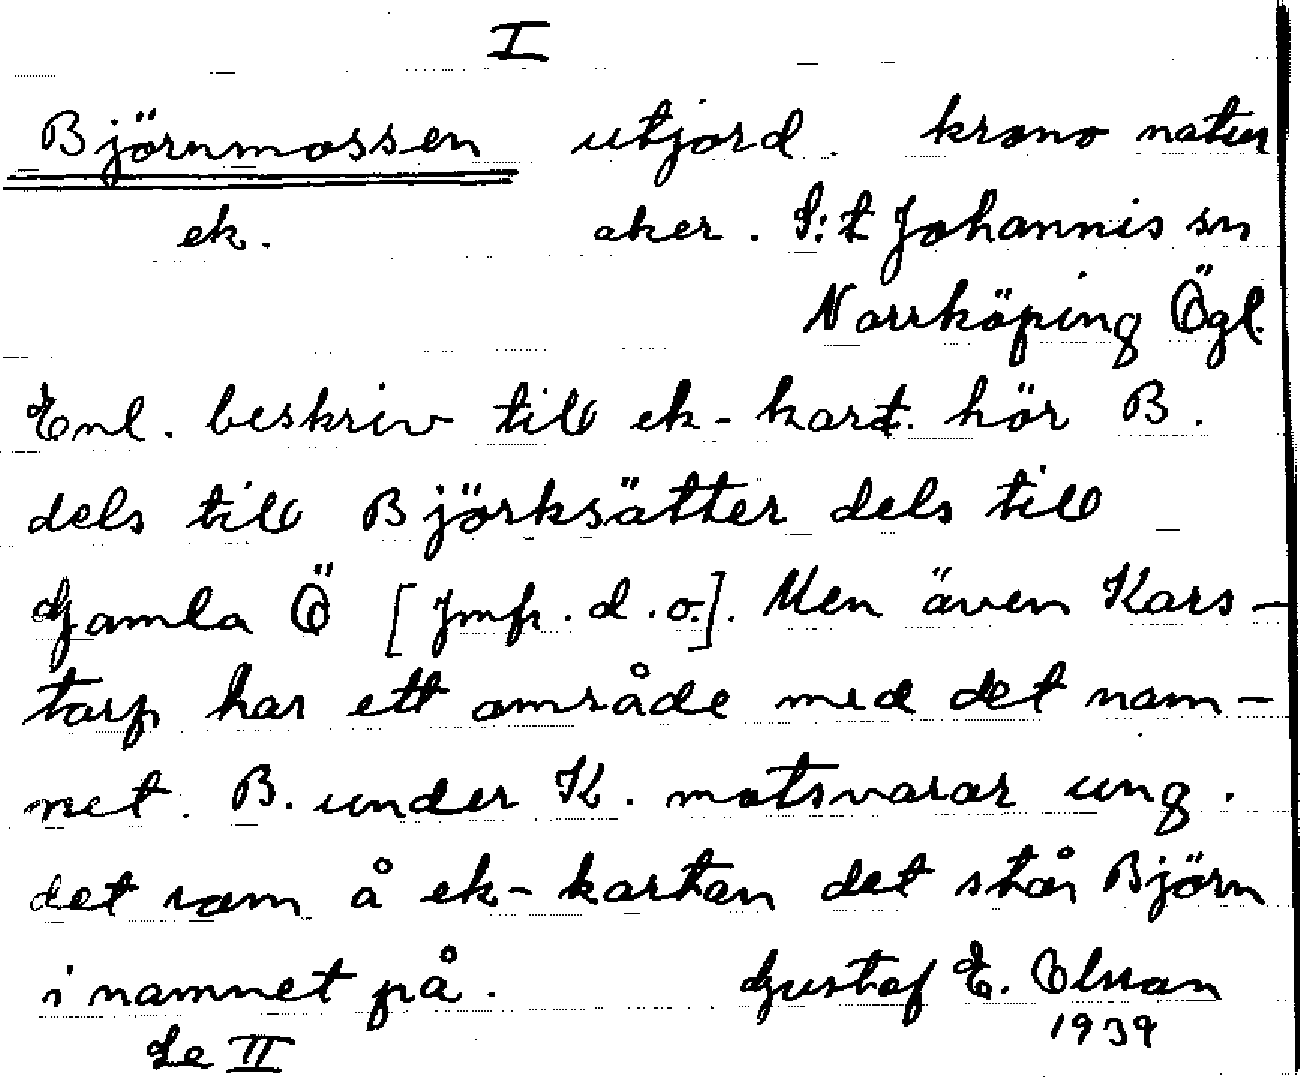 I
Björnmossen utjord. krono natur
ek. aker. S:t Johannis sn
Norrköping Ögl.
Enl. beskriv till ek-kart. hör B.
dels till Björksätter dels till
Gamla Ö [Jmfr. d.o.]. Men även Kors-
torp har ett område med det nam-
net. B. under K. motsvarar ung.
det som å ek-kartan det står Björn
i namnet på. Gustaf E. Olsson
Se II 1939